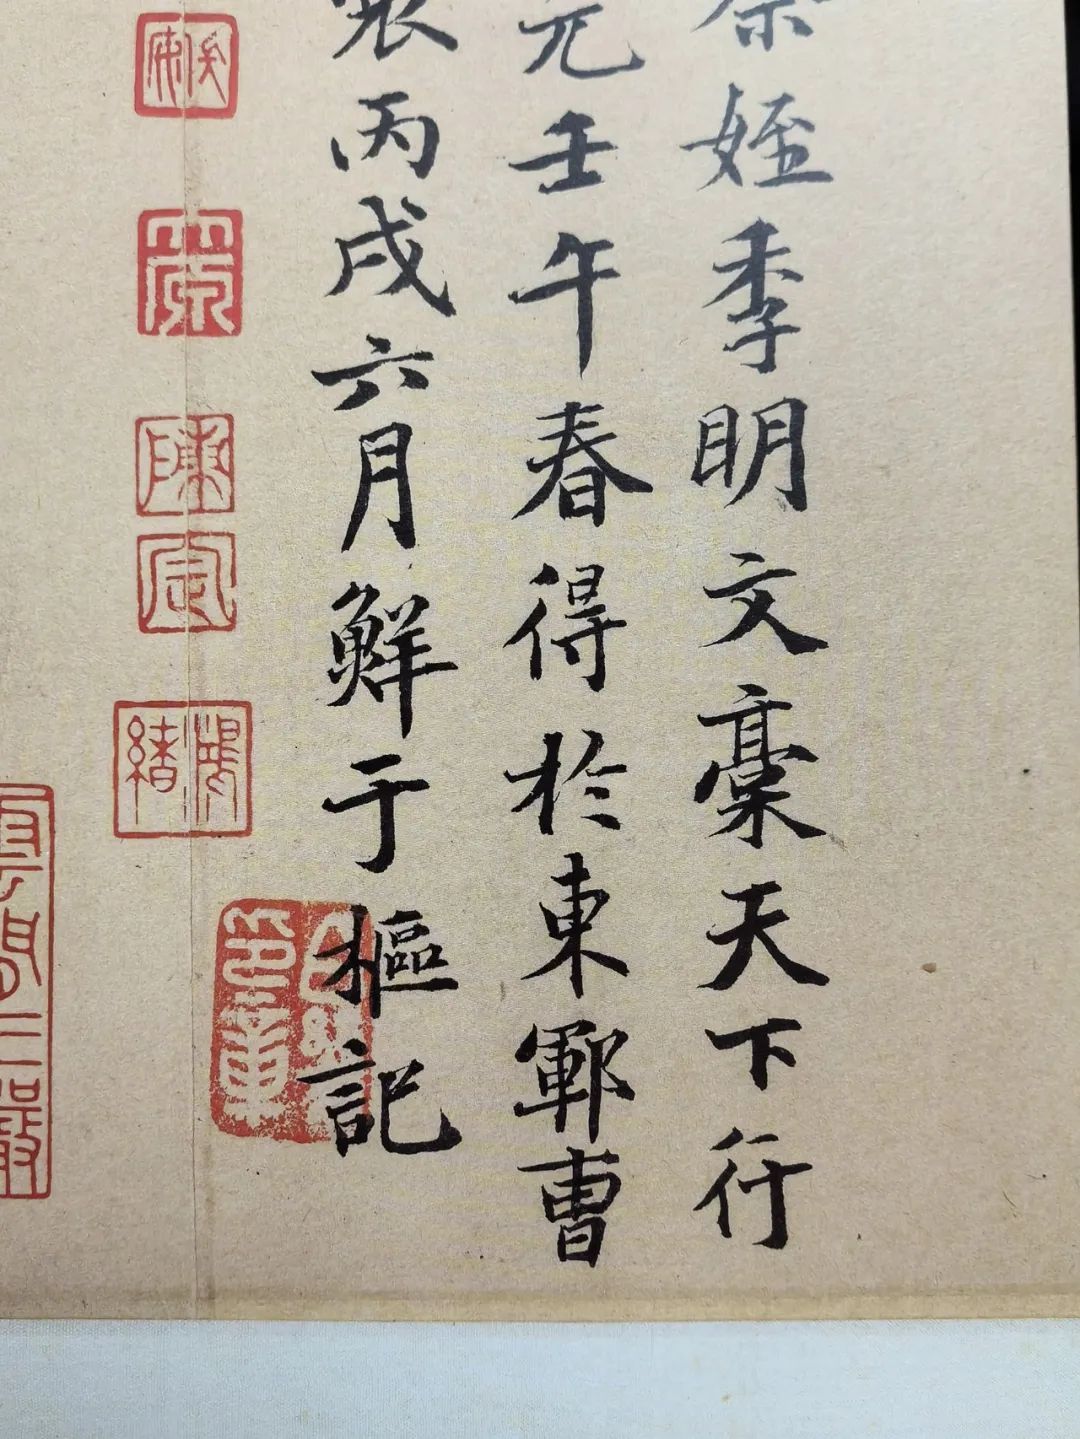 祭姪季明文稾天下行
元壬午春得於東鄆曹
裝丙戌六月鮮于樞記